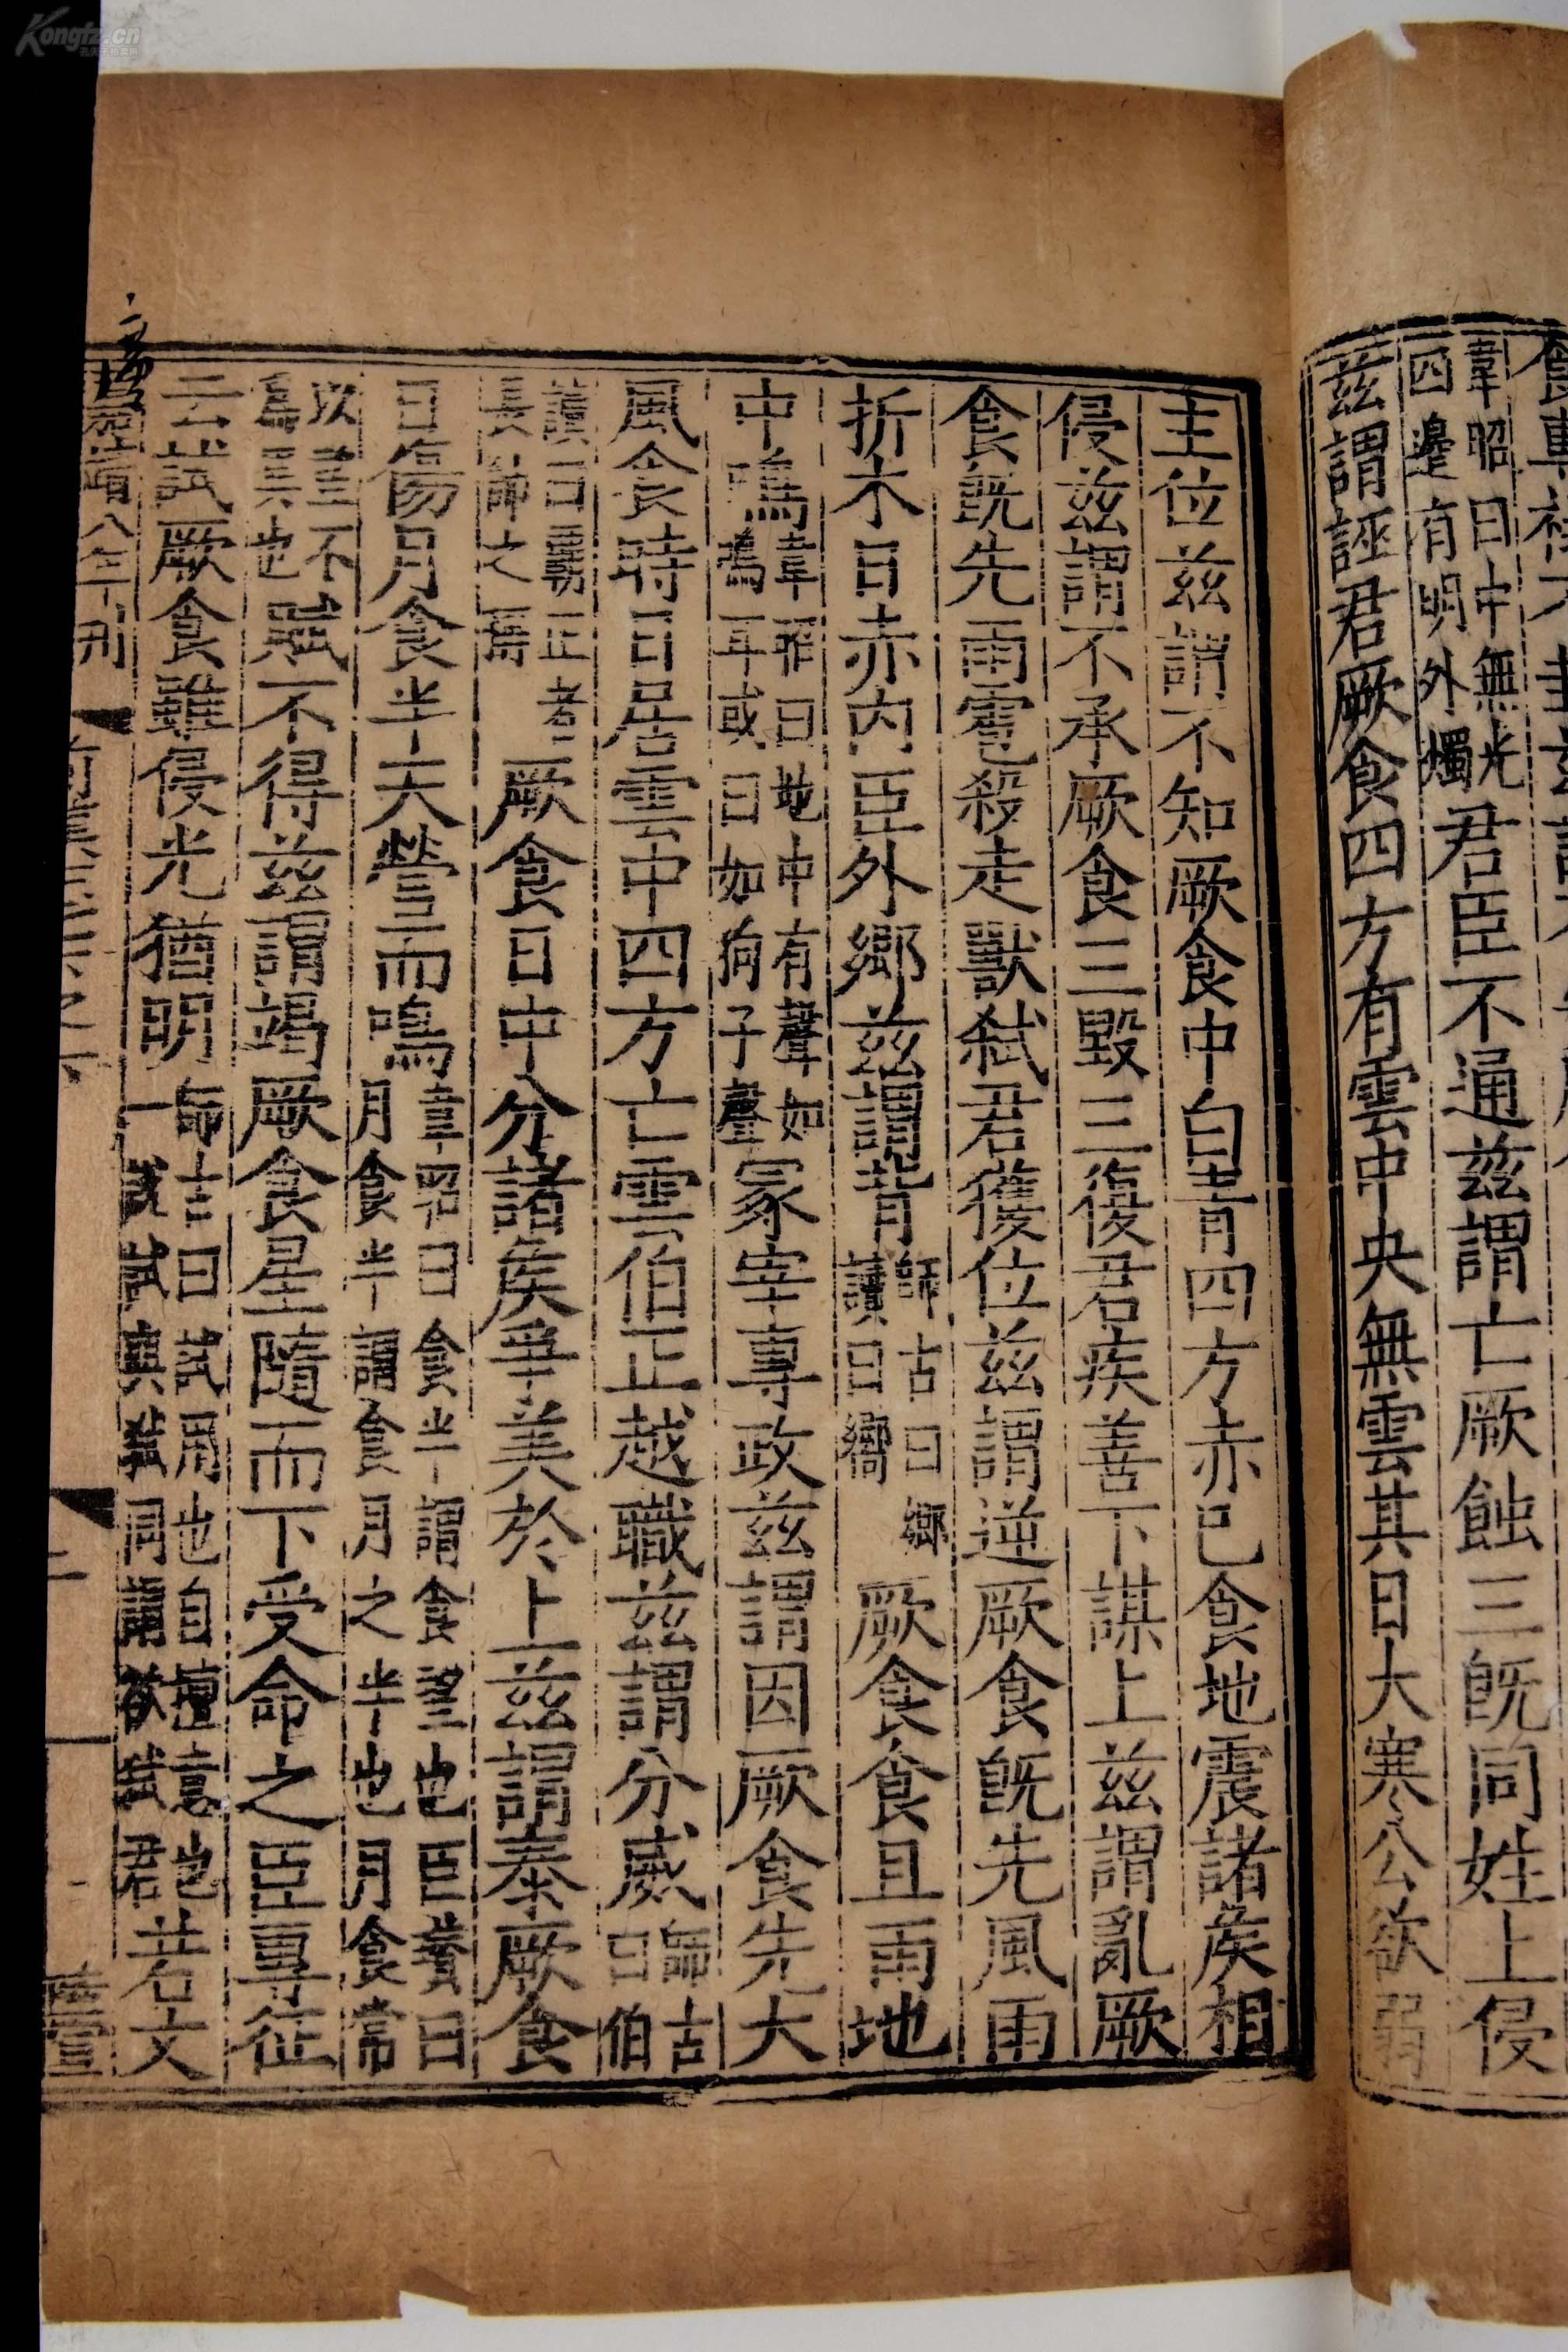 韋昭曰中無光四邊有明外燭君臣不通茲謂亡厥蝕三既同姓上侵
茲謂誣君厥食四方有雲中央無雲其日大寒公欲弱
主位茲謂不知厥食中白青四方赤已食地震諸矦相
侵茲謂不承厥食三毀三復君疾善下謀上茲謂亂厥
食既先雨雹殺走獸弑君獲位茲謂逆厥食既先風雨
折木日赤内臣外鄉茲謂背師古曰鄉讀曰嚮厥食食且雨地
中鳴韋昭曰地中有聲如鳴耳或曰如狗子聲冢宰專政茲謂因厥食先大
風食時日居雲中四方亡雲伯正越職茲謂分威師古曰伯
讀曰霸正者長帥之稱厥食日中分諸矦爭美於上茲謂泰厥食
日傷月食半天營而鳴韋昭曰食半謂食望也臣瓚曰月食半謂食月之半也月食常
以望不爲異也賦不得茲謂竭厥食星隨而下受命之臣專征
云試厥食雖侵光猶明師古曰試用也自擅意也一試試與弑同謂欲弑君若文
嘉靖八年刊
二
陸宣